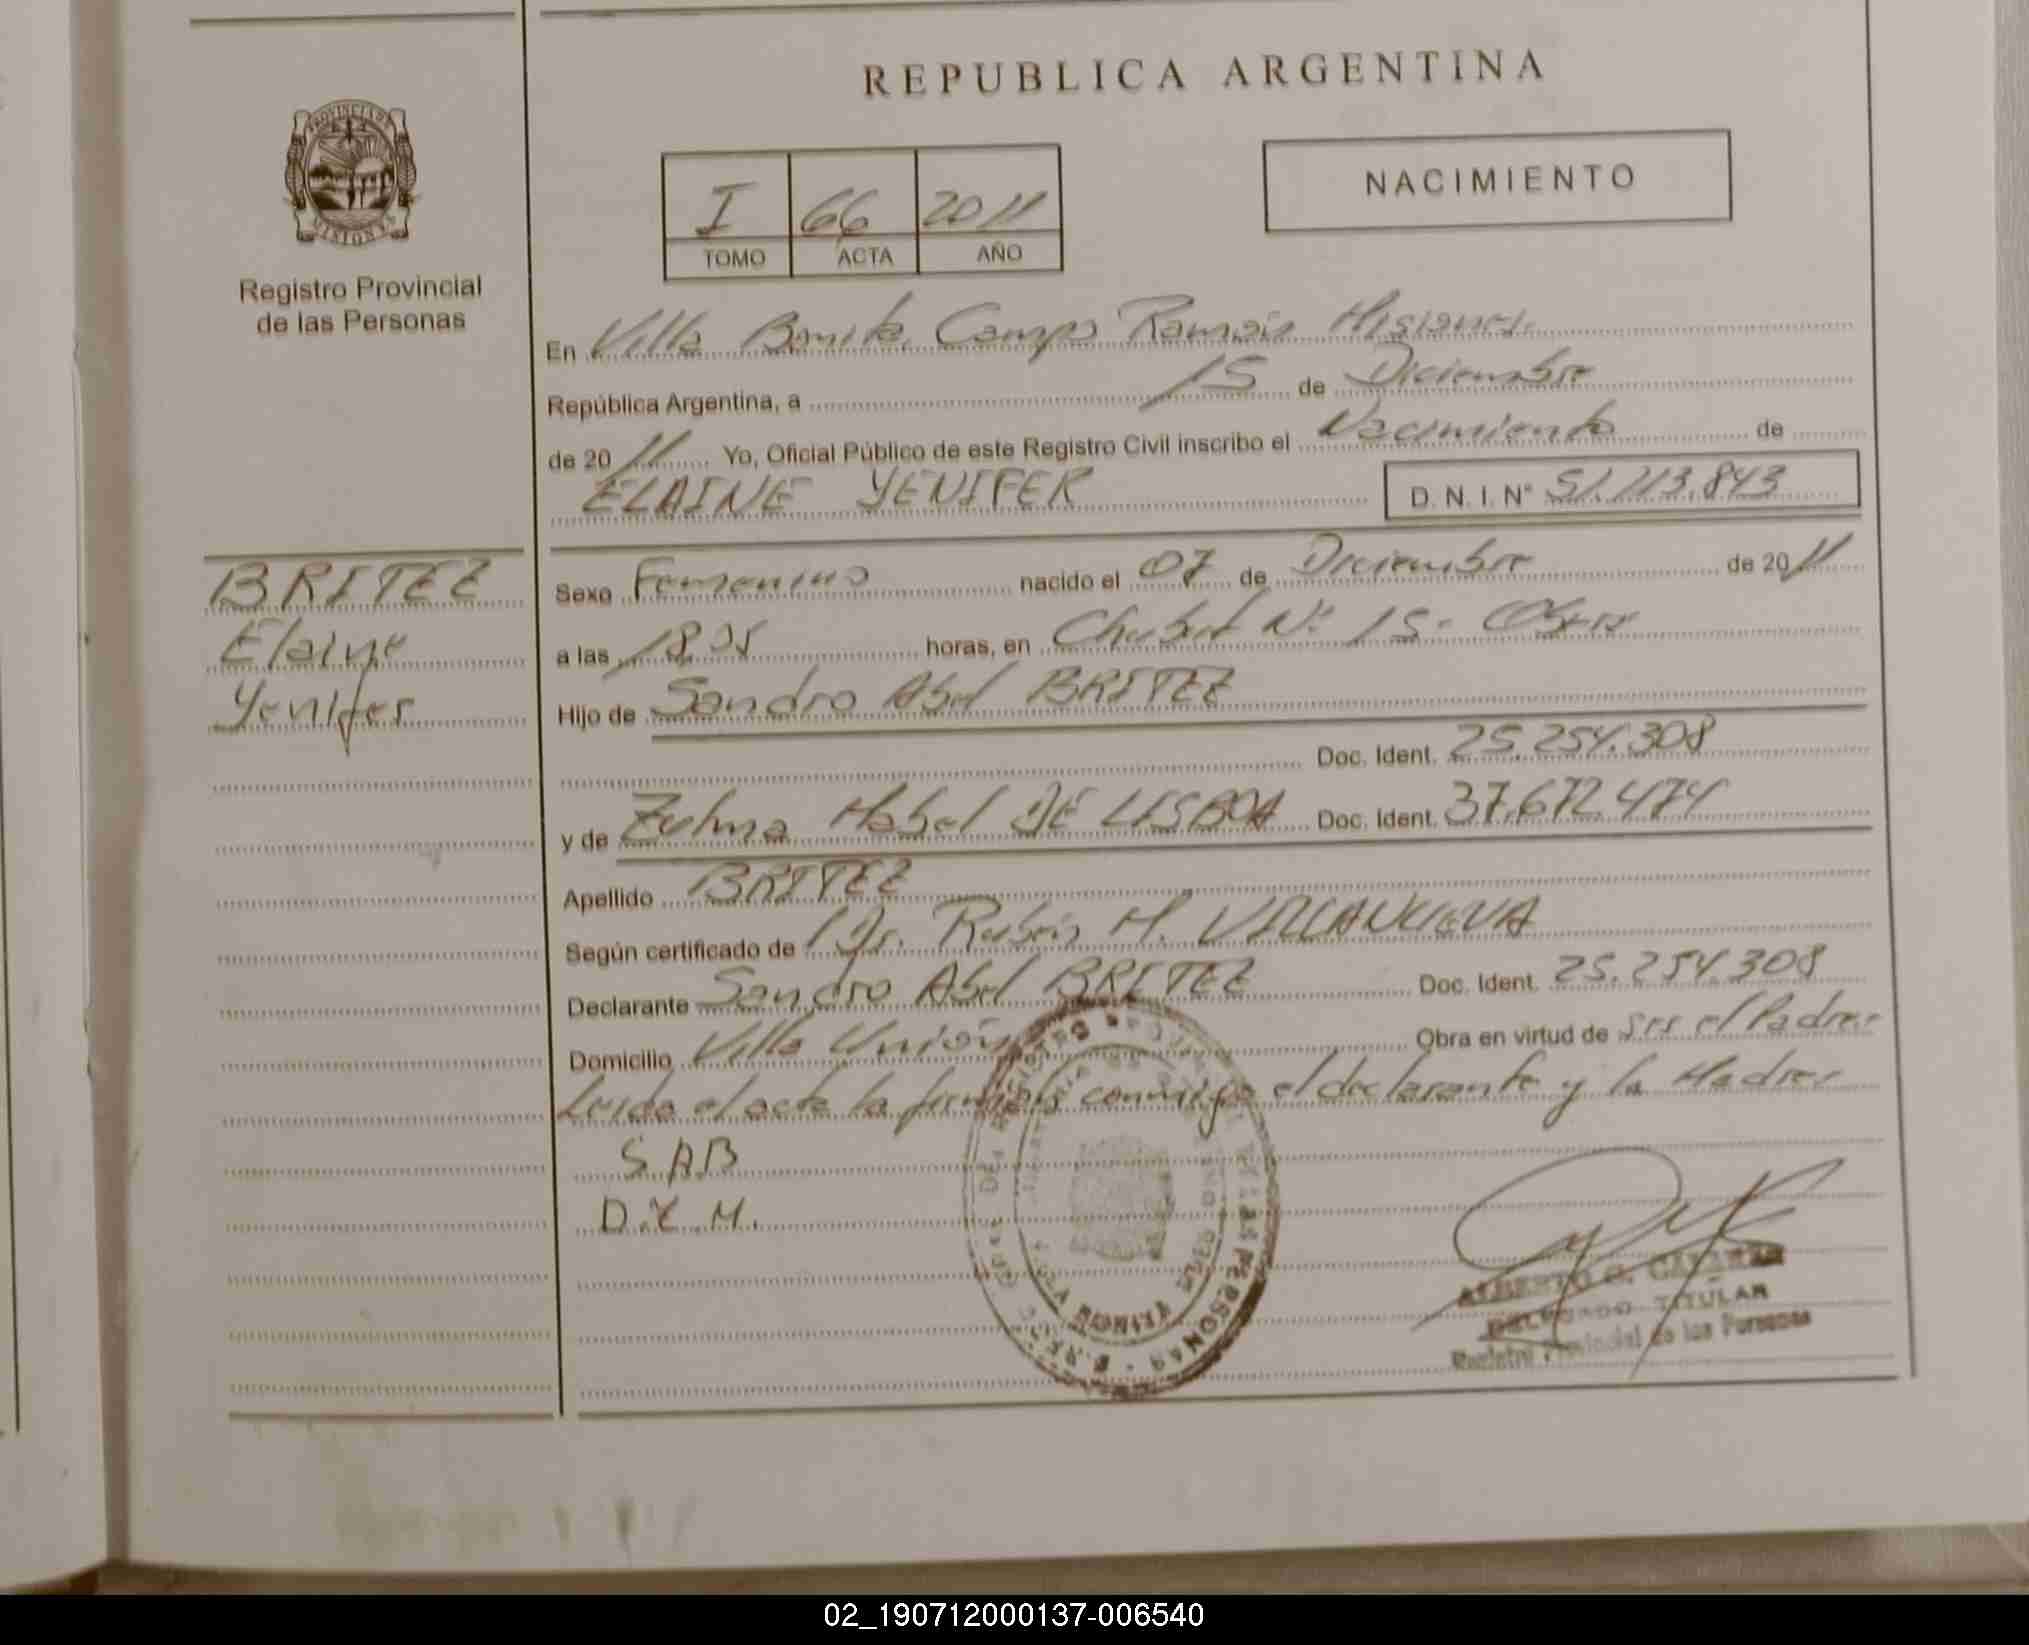 REPUBLICA ARGENTINA
PROVINCIA DE
MISIONES
Registro Provincial
de las Personas
NACIMIENTO
I 66 2011
TOMO ACTA AÑO
En Villa Bonita, Campo Ramón Misiones.
República Argentina, a 15 de Diciembre
de 2011 Yo, Oficial Público de este Registro Civil inscribo el Nacimiento de
ELAINE YENIFER D. N. I. N° 51.213.843
BRITEZ
Elaine
Yenifer
Sexo Femenino nacido el 07 de Diciembre de 2011
a las 18,05 horas, en Chubut N° 15- Oberá
Hijo de Sandro Abel BRITEZ
Doc. Ident. 25.254.308
y de Zulma Mabel DE LISBOA Doc. Ident. 37.672.474
Apellido BRITEZ
Según certificado de Dr. Rubén M. VILLANUEVA
Declarante Sandro Abel BRITEZ Doc. Ident. 25.254.308
Domicilio Villa Unión Obra en virtud de ser el Padre.-
Leida el acta la firman conmigo el declarante y la Madre.-
S.A.B
D.Z.M.
ALBERTO
DELEGADO TITULAR
Registro Provincial de las Personas
02_190712000137-006540